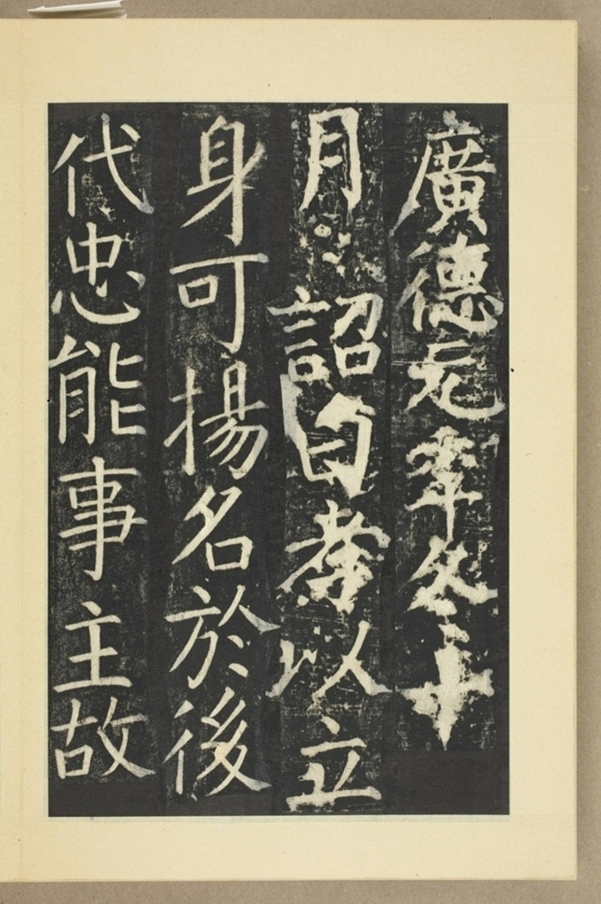 廣德元年冬十
月詔曰孝以立
身可揚名於後
代忠能事主故